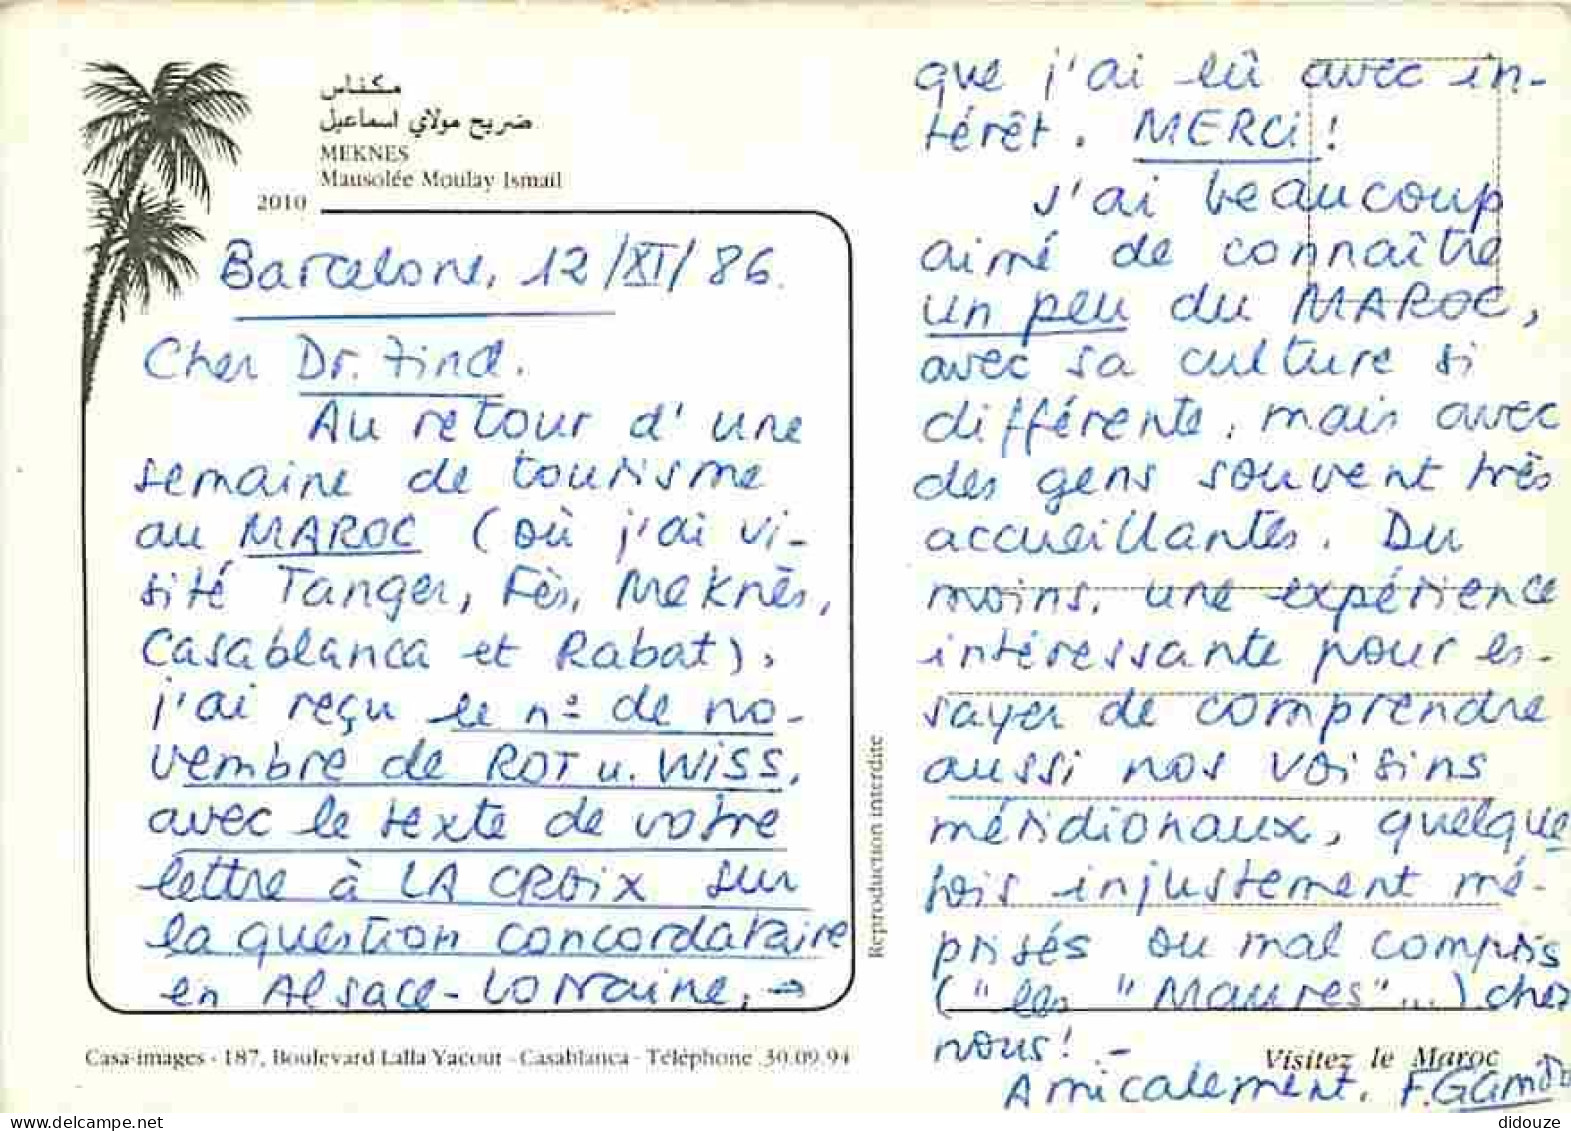 مكناس
ضريح مولاي اسماعيل
MEKNES
Mausolée Moulay Ismail
2010
Barcelone, 12/XI/86.
Cher Dr.
Au retour d'une
semaine de tourisme
au MAROC (où j'ai vi-
sité Tanger, Fès, Meknès,
Casablanca et Rabat),
j'ai reçu le nº de no-
vembre de ROT u. WISS,
avec le texte de votre
lettre à LA CROIX sur
la question concordataire
en Alsace-Lorraine, →
que j'ai lû avec in-
térêt. MERCi!
J'ai beaucoup
aimé de connaître
un peu du MAROC,
avec sa culture si
différente, mais avec
des gens souvent très
accueillantes. Du
moins, une expérience
intéressante pour es-
sayer de comprendre
aussi nos voisins
méridionaux, quelque
fois injustement mé-
prisés ou mal compris
("les "Maures"...) chez
nous! -
Amicalement,
Reproduction interdite
Casa-images - 187, Boulevard Lalla Yacout - Casablanca - Téléphone 30.09.94
Visitez le Maroc
didouze